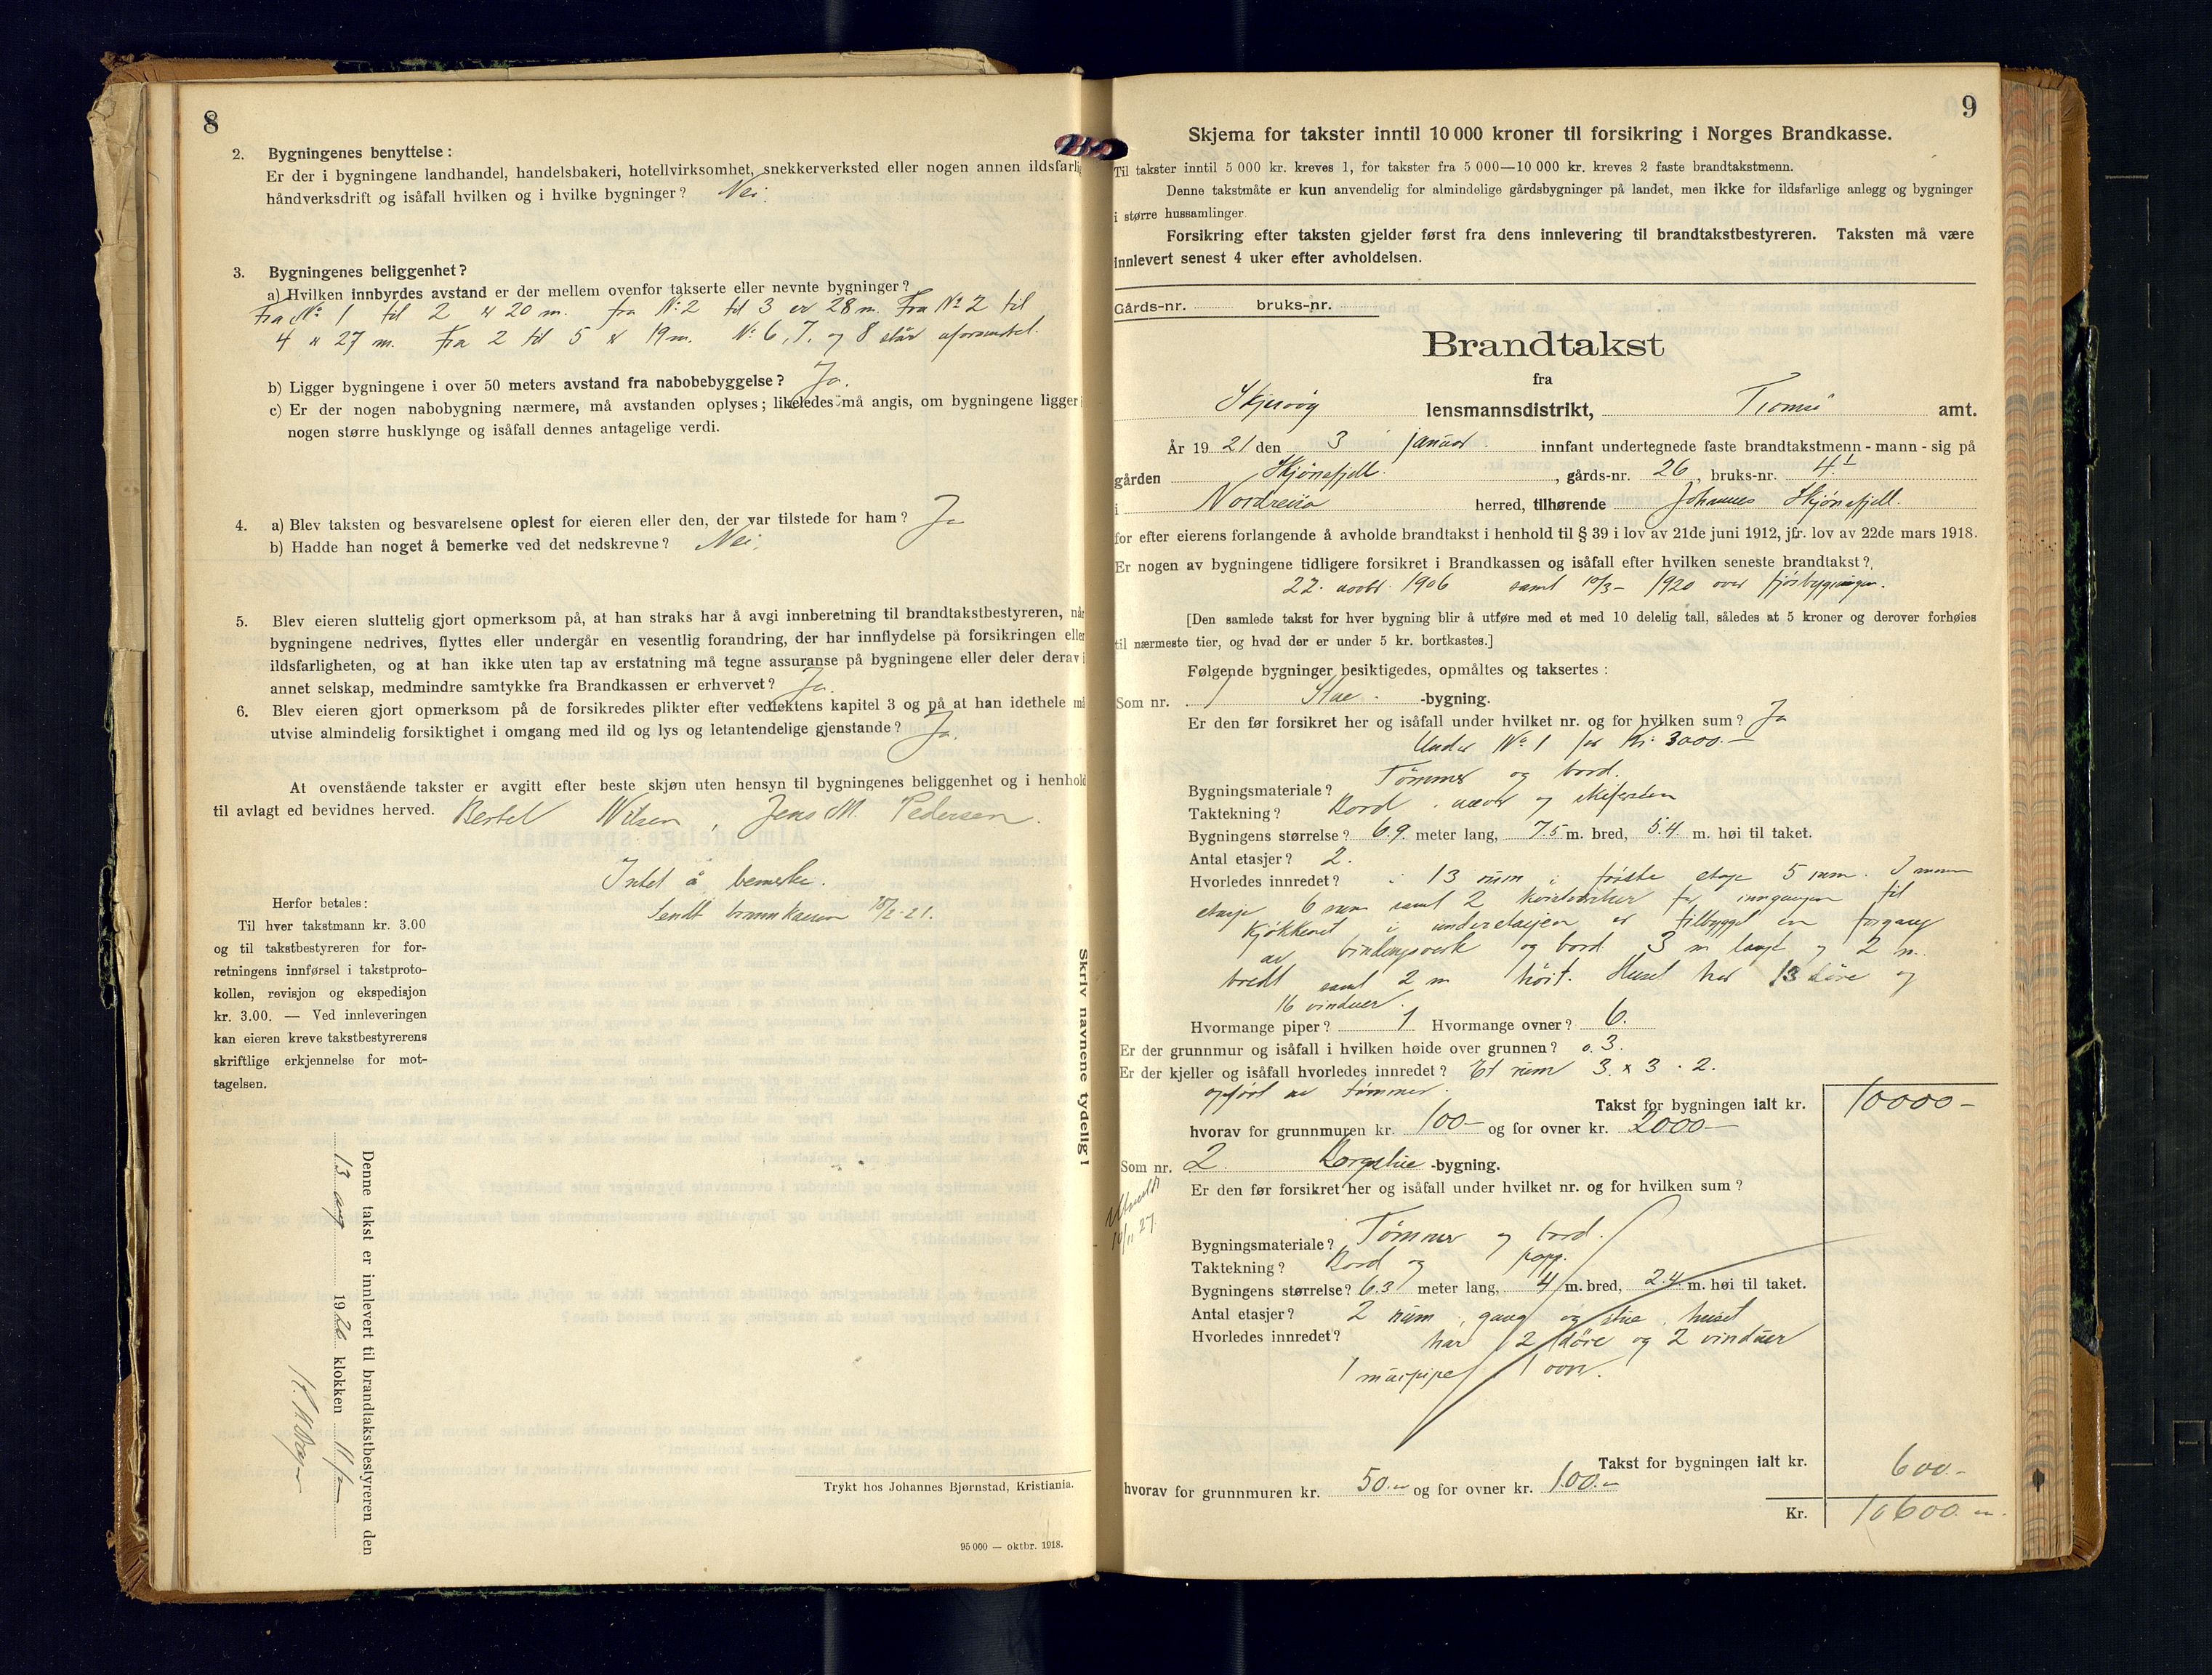 8
2. Bygningenes benyttelse:
Er der i bygningene landhandel, handelsbakeri, hotellvirksomhet, snekkerverksted eller nogen annen ildsfarlig
håndverksdrift og isåfall hvilken og i hvilke bygninger? Nei.
3. Bygningenes beliggenhet?
a) Hvilken innbyrdes avstand er der mellem ovenfor takserte eller nevnte bygninger?
Fra No 1 til 2 er 20 m. fra No 2 til 3 er 28 m. Fra No 2 til
4 er 27 m. Fra 2 til 5 er 19 m. No 6, 7, og 8 står uforandret.
b) Ligger bygningene i over 50 meters avstand fra nabobebyggelse? Ja.
c) Er der nogen nabobygning nærmere, må avstanden oplyses; likeledes må angis, om bygningene ligger i
nogen større husklynge og isåfall dennes antagelige verdi.
4. a) Blev taksten og besvarelsene oplest for eieren eller den, der var tilstede for ham? Ja
b) Hadde han noget å bemerke ved det nedskrevne? Nei.
5. Blev eieren sluttelig gjort opmerksom på, at han straks har å avgi innberetning til brandtakstbestyreren, når
bygningene nedrives, flyttes eller undergår en vesentlig forandring, der har innflydelse på forsikringen eller
ildsfarligheten, og at han ikke uten tap av erstatning må tegne assuranse på bygningene eller deler derav i
annet selskap, medmindre samtykke fra Brandkassen er erhvervet? Ja.
6. Blev eieren gjort opmerksom på de forsikredes plikter efter vedtektens kapitel 3 og på at han idethele må
utvise almindelig forsiktighet i omgang med ild og lys og letantendelige gjenstande? Ja.
At ovenstående takster er avgitt efter beste skjøn uten hensyn til bygningenes beliggenhet og i henhold
til avlagt ed bevidnes herved. Bertel Nilsen, Jens M. Pedersen.
Intet å bemerke.
Sendt brannkassen 18/2-21.
Herfor betales:
Til hver takstmann kr. 3.00
og til takstbestyreren for for-
retningens innførsel i takstproto-
kollen, revisjon og ekspedisjon
kr. 3.00. — Ved innleveringen
kan eieren kreve takstbestyrerens
skriftlige erkjennelse for mot-
tagelsen.
Denne takst er innlevert til brandtakstbestyreren den
13 aug 1920 klokken 11 fm
Skriv navnene tydelig!
Trykt hos Johannes Bjørnstad, Kristiania.
95 000 — oktbr. 1918.
9
Skjema for takster inntil 10 000 kroner til forsikring i Norges Brandkasse.
Til takster inntil 5 000 kr. kreves 1, for takster fra 5 000—10 000 kr. kreves 2 faste brandtakstmenn.
Denne takstmåte er kun anvendelig for almindelige gårdsbygninger på landet, men ikke for ildsfarlige anlegg og bygninger
i større hussamlinger
Forsikring efter taksten gjelder først fra dens innlevering til brandtakstbestyreren. Taksten må være
innlevert senest 4 uker efter avholdelsen.
Gårds-nr. bruks-nr.
Brandtakst
fra
Skjervøy lensmannsdistrikt, Tromsø amt.
År 1921 den 3 januar innfant undertegnede faste brandtakstmenn - mann - sig på
gården Skjønefjell, gårds-nr. 26, bruks-nr. 4.1
i Nordreisa herred, tilhørende Johannes Skjønefjell.
for efter eierens forlangende å avholde brandtakst i henhold til § 39 i lov av 21de juni 1912, jfr. lov av 22de mars 1918.
Er nogen av bygningene tidligere forsikret i Brandkassen og isåfall efter hvilken seneste brandtakst?
22. novbr. 1906 samt 10/3- 1920 over fjøsbygningen.
[Den samlede takst for hver bygning blir å utføre med et med 10 delelig tall, således at 5 kroner og derover forhøies
til nærmeste tier, og hvad der er under 5 kr. bortkastes.]
Følgende bygninger besiktigedes, opmåltes og taksertes:
Som nr. 1 Stue-bygning.
Er den før forsikret her og isåfall under hvilket nr. og for hvilken sum? Ja
Under No 1 for Kr. 3000.—
Bygningsmateriale? Tømmer og bord.
Taktekning? Bord, never og skifersten
Bygningens størrelse? 6.9 meter lang, 7.5 m. bred, 5.4 m. høi til taket.
Antal etasjer? 2.
Hvorledes innredet? i 13 rum i første etage 5 rum. I annen
etage 6 rum samt 2 kvistværker for inngangen til
kjøkkenet i underetasjen er tilbygget en forgang
av bindingsverk og bord 3 m lang og 2 m
bredt samt 2 m høit. Huset har 13 døre og
16 vinduer.
Hvormange piper? 1 Hvormange ovner? 6.
Er der grunnmur og isåfall i hvilken høide over grunnen? 0.3.
Er der kjeller og isåfall hvorledes innredet? Et rum 3 x 3 . 2.
opført av tømmer.
Takst for bygningen ialt kr. 10000-
hvorav for grunnmuren kr. 100- og for ovner kr. 2000-
Som nr. 2 Borgstue-bygning.
Utmeldt
10/11 27.
Er den før forsikret her og isåfall under hvilket nr. og for hvilken sum?
Bygningsmateriale? Tømmer og bord.
Taktekning? Bord og papp.
Bygningens størrelse? 6.3 meter lang, 4 m. bred, 2.4 m. høi til taket.
Antal etasjer? 2 rum, gang og stue, huset
Hvorledes innredet? har 2 døre og 2 vinduer
1 murpipe 1 ovn.
Takst for bygningen ialt kr. 600.-
hvorav for grunnmuren kr. 50.- og for ovner kr. 100.-
Kr. 10600.-